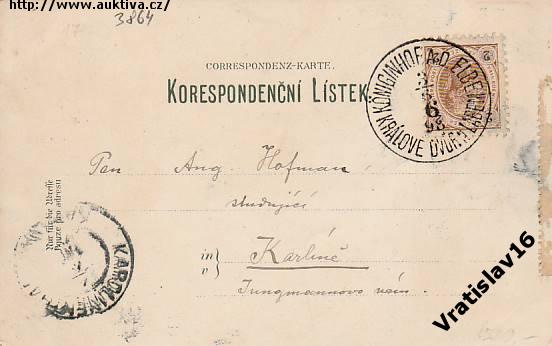 Zdroj: www.auktiva.cz/
3864
CORRESPONDENZ-KARTE.
KORESPONDENČNÍ LÍSTEK.
KÖNIGINHOF A.D. ELBE
KRÁLOVÉ DVŮR
6
98
2
Pan Aug. Hofman
studující
in
v
Karlíně
Jungmannovo nám.
Nur für die Adresse
Pouze pro adresu
KAROLINEN
Vratislav16